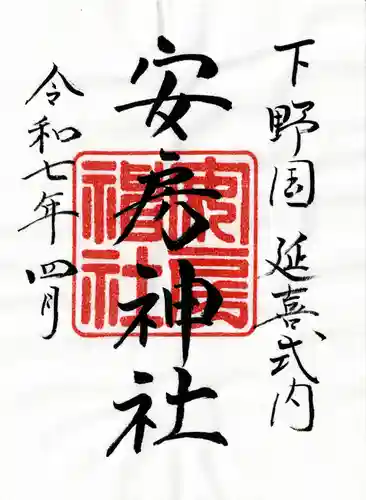 下野国 延喜式内
安房神社
令和七年 四月
安房神社